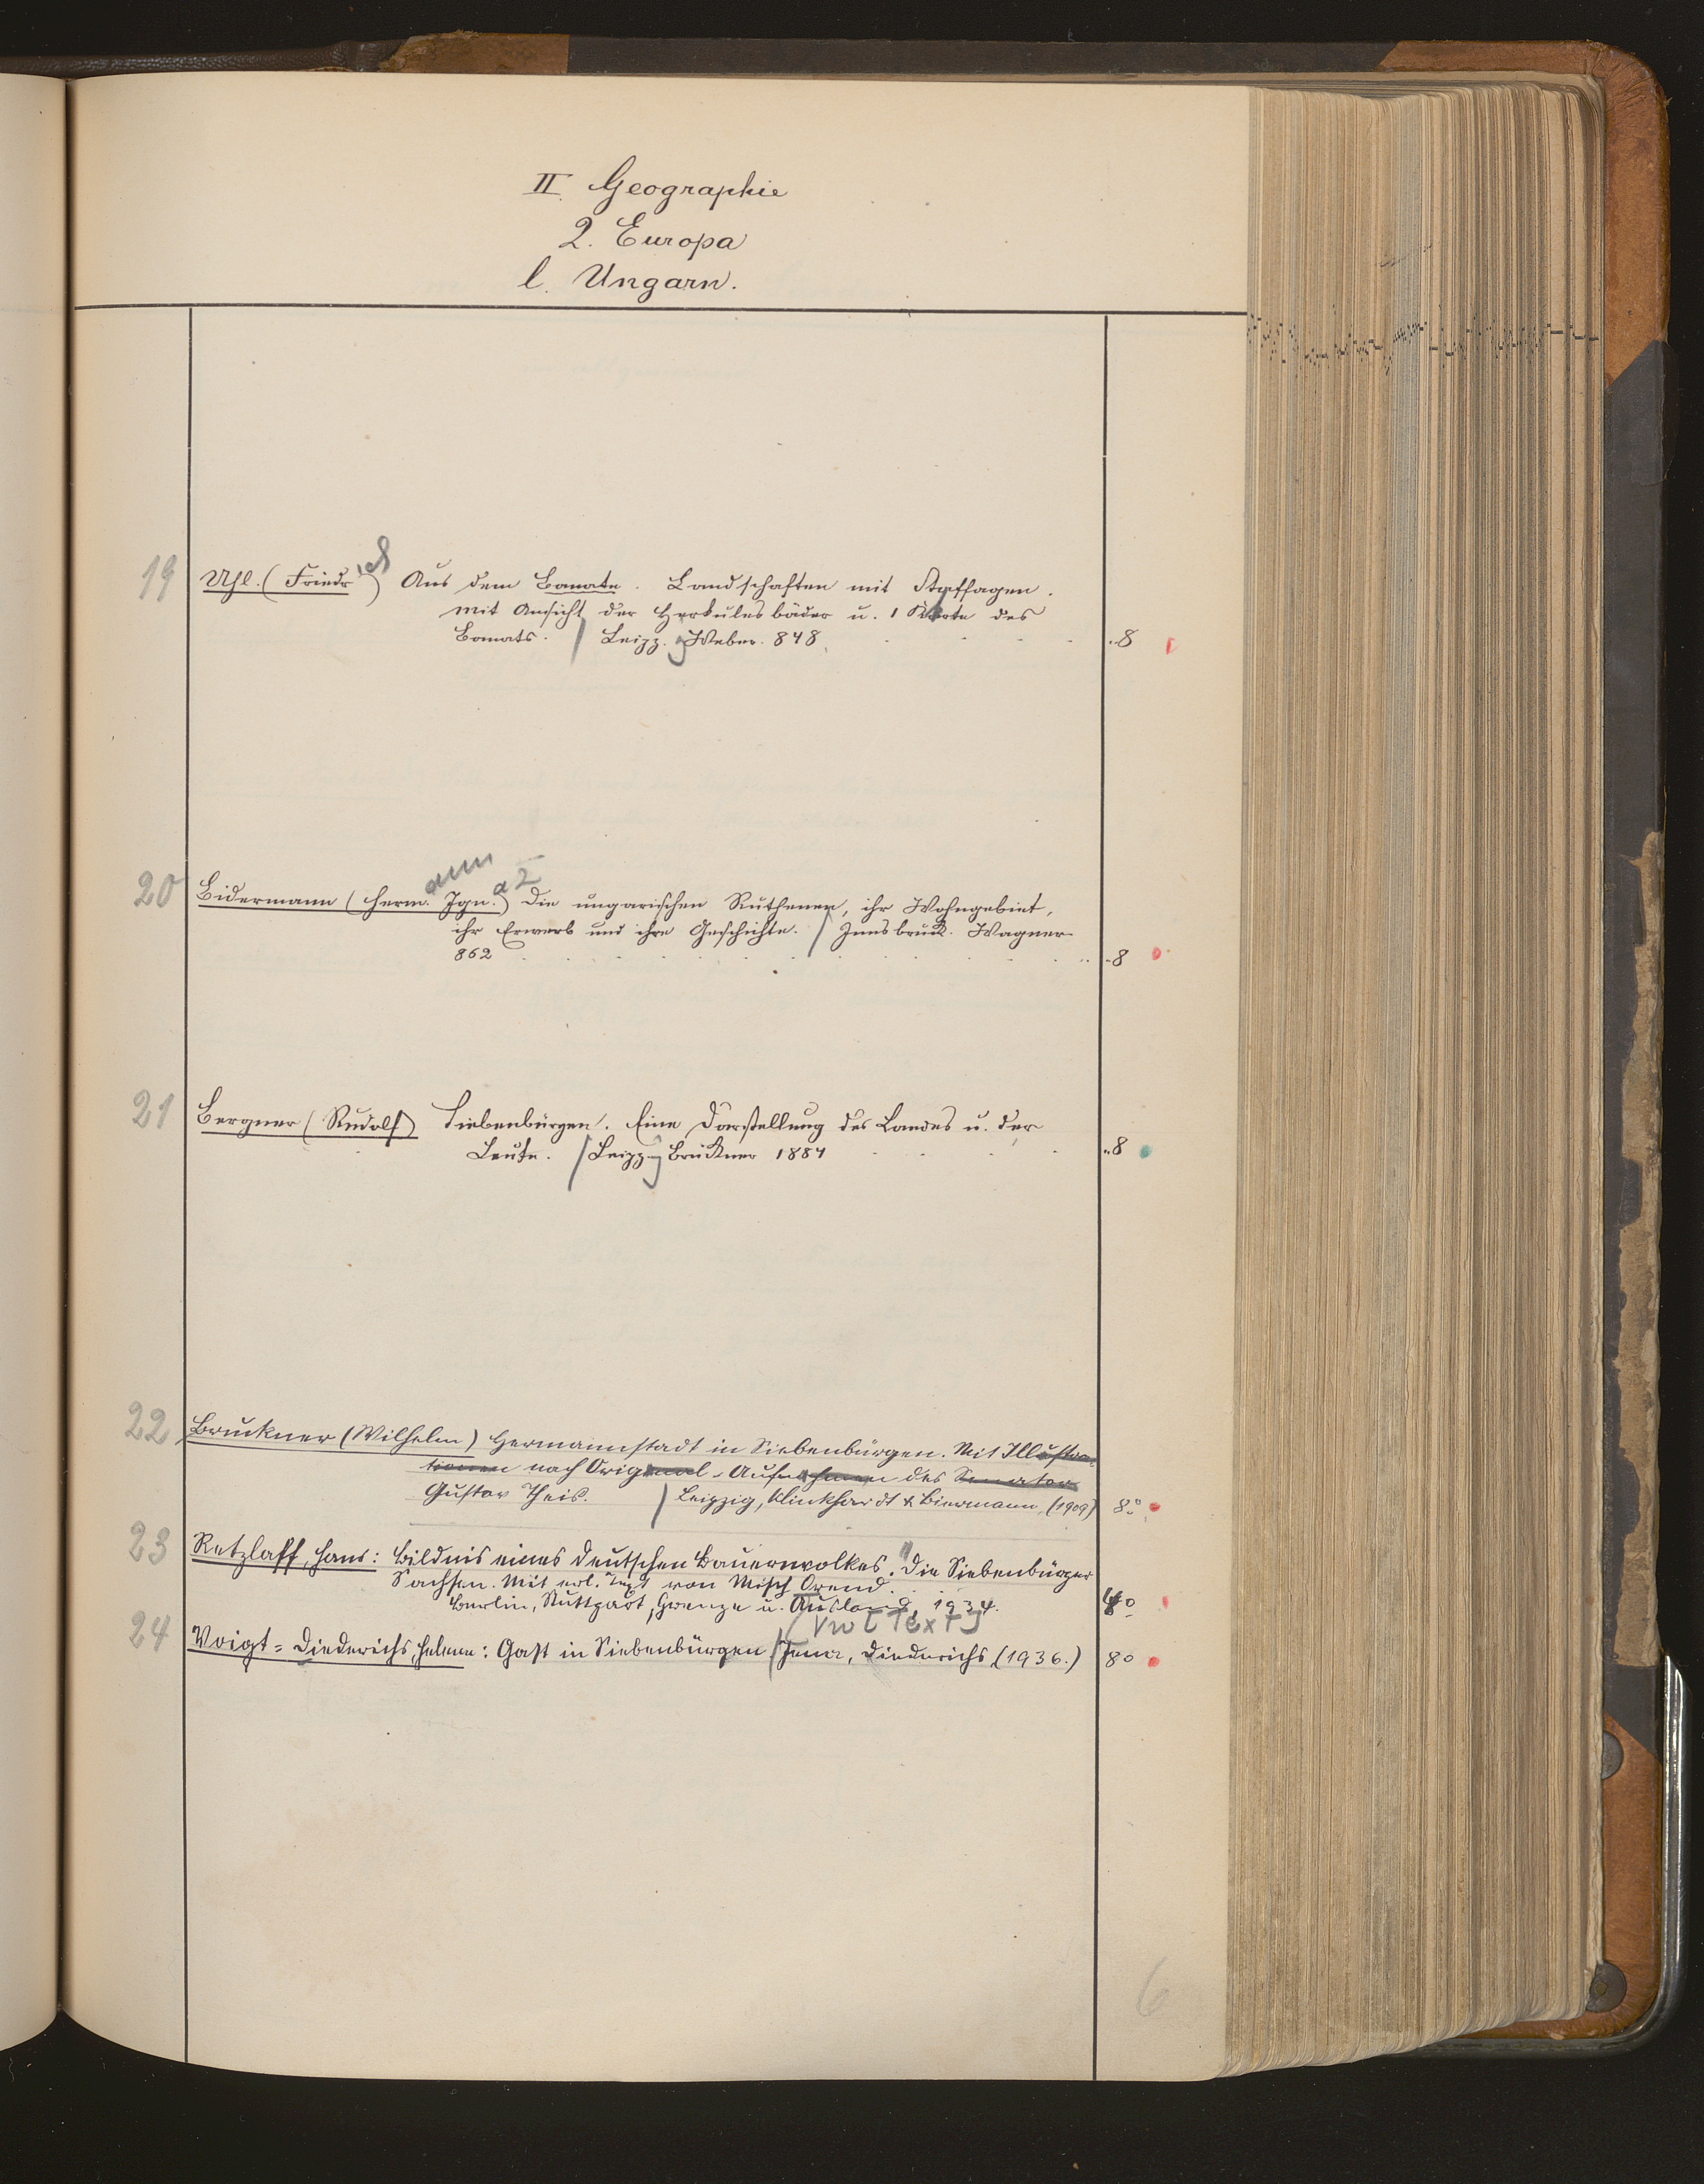 II. Geographie
2. Europa
l. Ungarn.
19 Uhl. (Friedrich) Aus dem Banate. Landschaften mit Staffagen.
Mit Ansicht der Herkulesbäder u. 1 Karte des
Banats. / Leipz. Weber. 848. ..8
20 Bidermann (Herm. Ign.) Die ungarischen Ruthenen, ihr Wohngebiet,
ihr Erwerb und ihre Geschichte. / Innsbruck. Wagner
862 ..8
21 Bergner (Rudolf) Siebenbürgen. Eine Darstellung des Landes u. der
Leute. / Leipzg Brückner 1884 ..8
22 Bruckner (Wilhelm) Hermannstadt in Siebenbürgen. Mit Illustra-
tionen nach Original-Aufnahmen des Senator
Gustav Theis. / Leipzig, Klinkhardt & Biermann, (1909) 8º
23 Retzlaff, Hans: Bildnis eines deutschen Bauernvolkes. Die Siebenbürger
Sachsen. Mit erl. Text von Misch Orend.
Berlin, Stuttgart, Grenze u. Ausland, 1934. 4º
[Text]
24 Voigt-Diederichs, Helene: Gast in Siebenbürgen / Jena, Diederichs (1936.) 8º
6